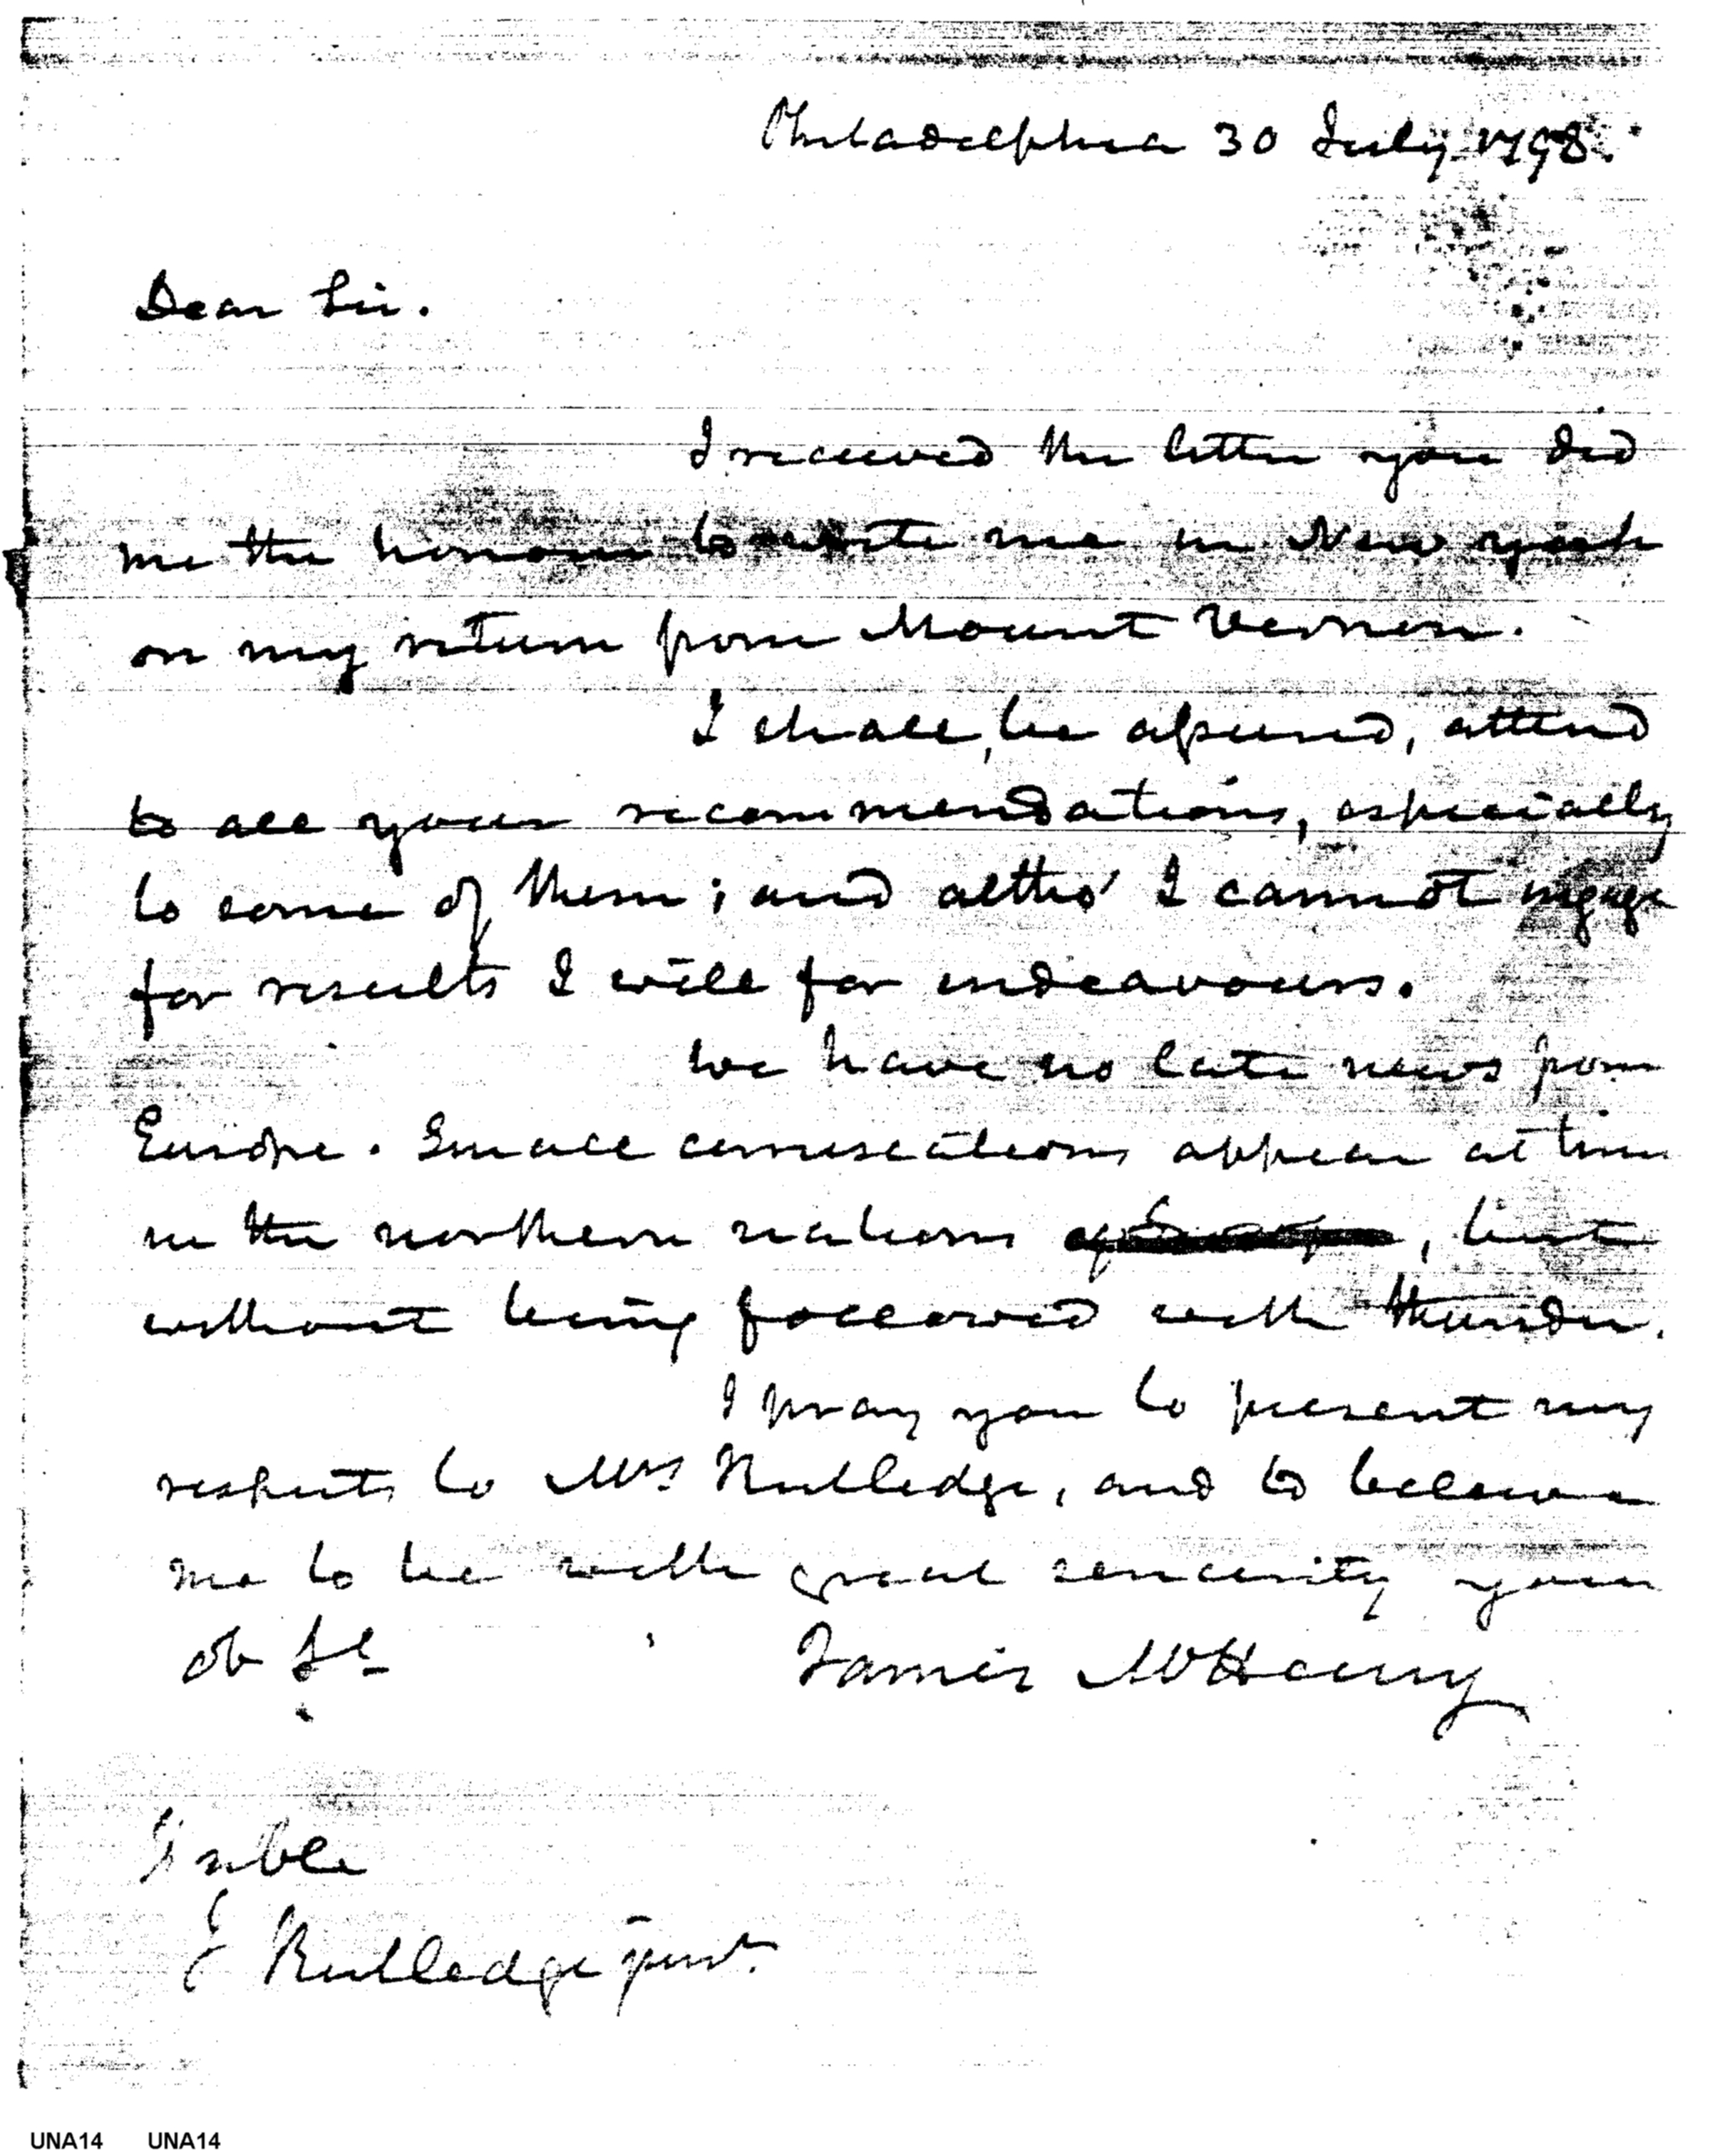 Philadelphia 30 July 1798.
Dear Sir.
I received the letter you did
me the honour to write me in New york
on my return from Mount Vernon.
I shall, be assured, attend
to all your recommendations, especially
to some of them; and altho' I cannot engage
for results I will for endeavours.
We have no late news from
Europe. Small coruscations appear at times
in the northern nations , but
without being followed with thunder.
I pray you to present my
respects to Mrs Rutledge, and to believe
me to be with great sincerity your
ob St
James McHenry
E Rutledge junr.
UNA14 UNA14